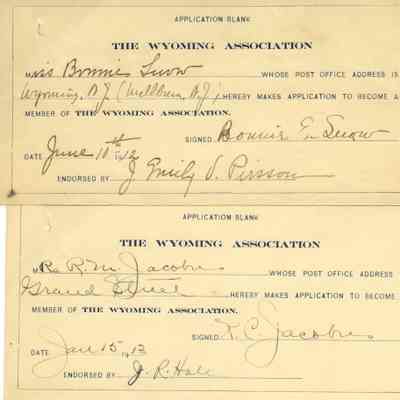 APPLICATION BLANK
THE WYOMING ASSOCIATION
Miss Bonnie Snow WHOSE POST OFFICE ADDRESS IS
Wyoming, N.J. (Millburn, N.J.), HEREBY MAKES APPLICATION TO BECOME A
MEMBER OF THE WYOMING ASSOCIATION.
SIGNED Bonnie E. Snow
DATE June 10th 1912
ENDORSED BY J Emily V. Pirsson
APPLICATION BLANK
THE WYOMING ASSOCIATION
R.M. Jacobus WHOSE POST OFFICE ADDRESS
Grand Street, HEREBY MAKES APPLICATION TO BECOME
MEMBER OF THE WYOMING ASSOCIATION.
SIGNED C. Jacobus
DATE Jan 15, 13
ENDORSED BY J. R. Hale